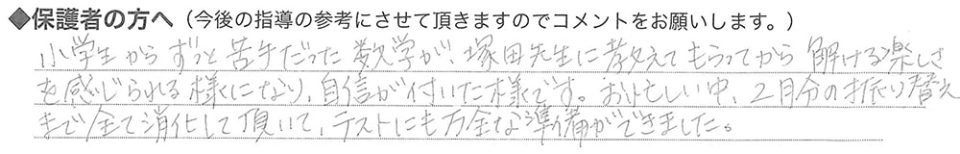 ◆保護者の方へ（今後の指導の参考にさせて頂きますのでコメントをお願いします。）
小学生からずっと苦手だった数学が、塚田先生に教えてもらってから解ける楽しさ
を感じられる様になり、自信が付いた様です。お忙しい中、2月分の振り替え
まで全て消化して頂いて、テストにも万全な準備ができました。